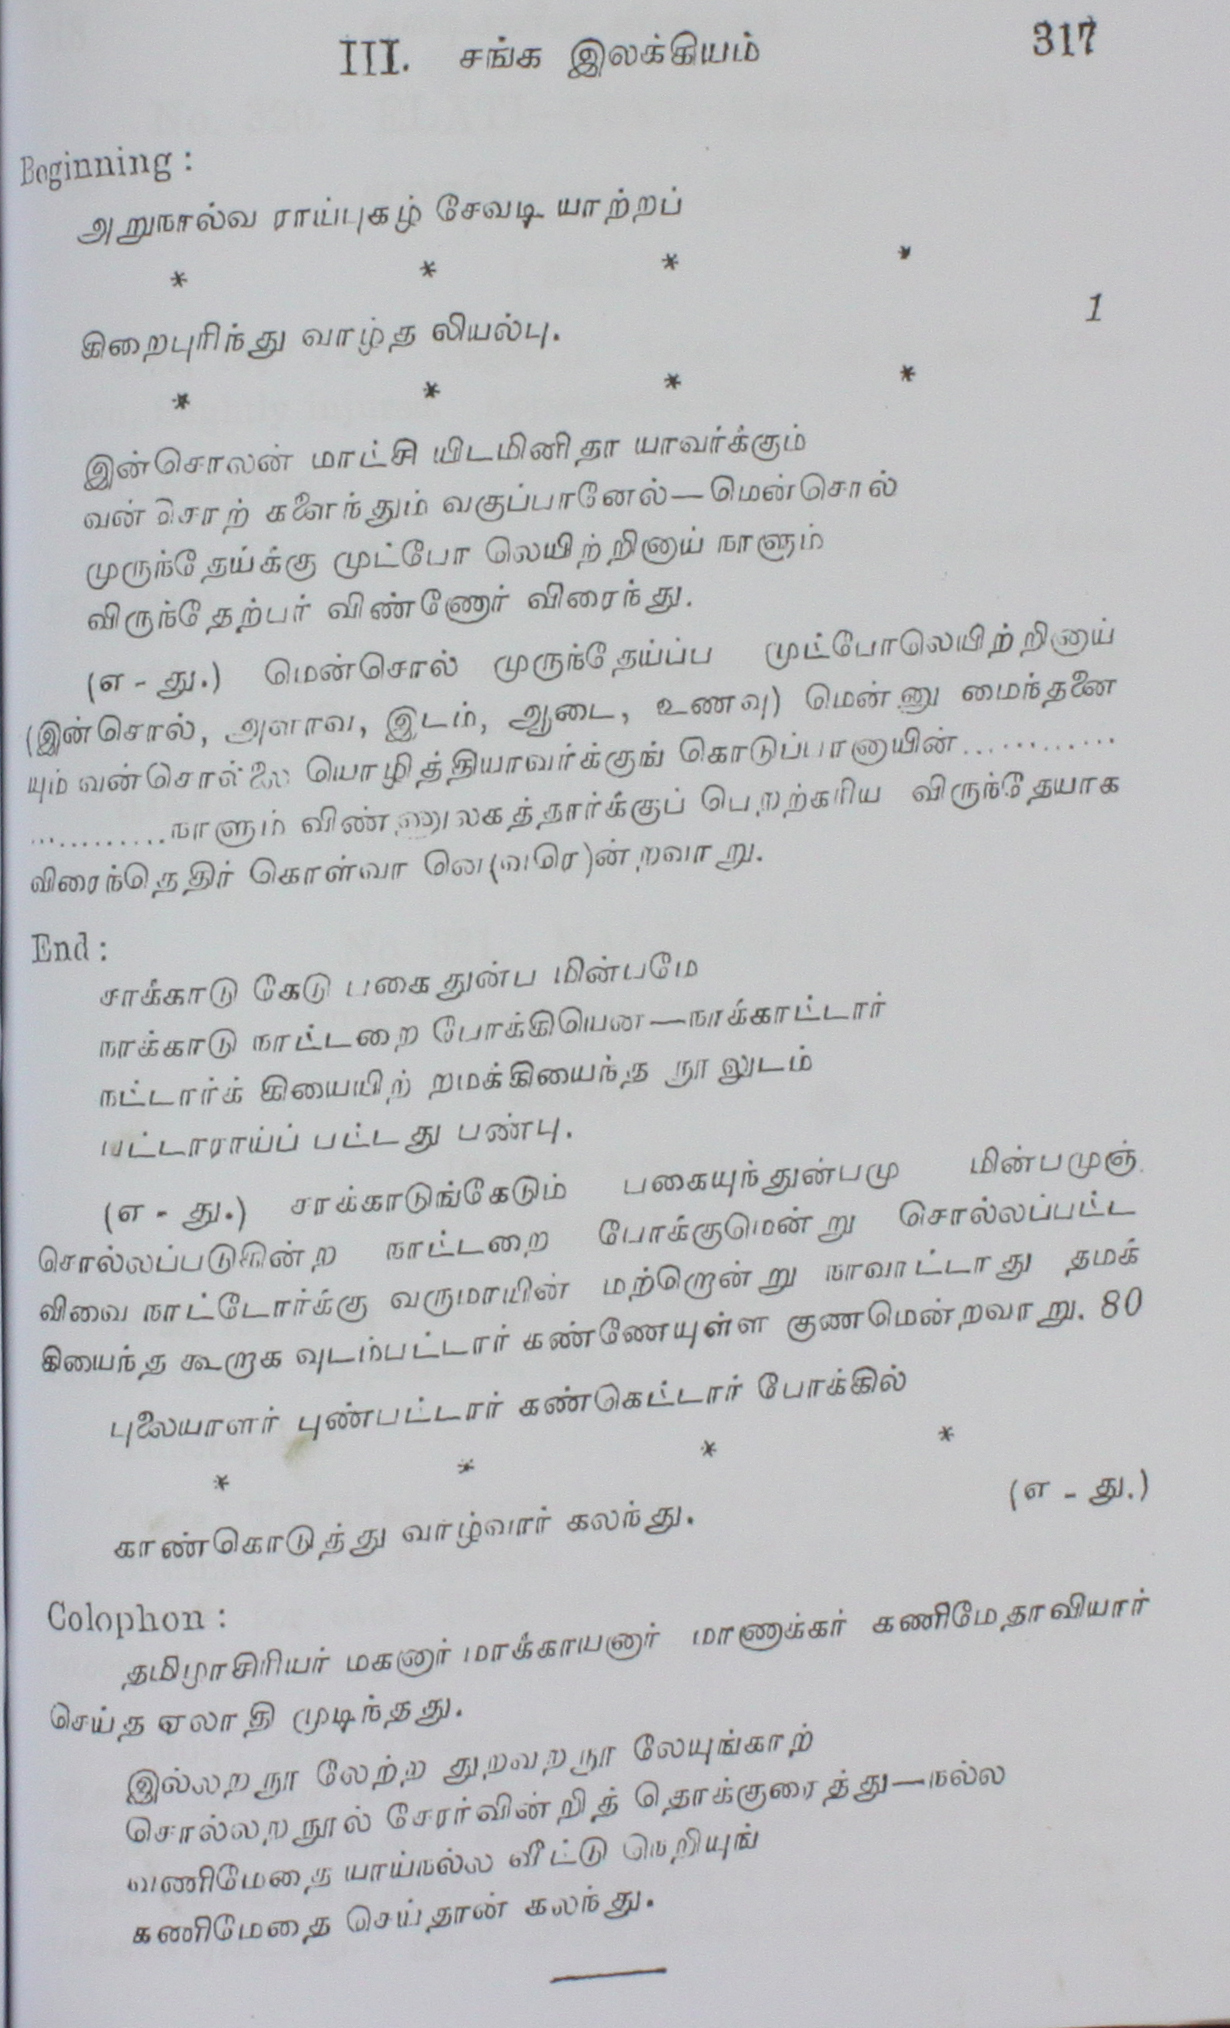 III. சங்க இலக்கியம் 317
Beginning :
அறுநால்வ ராய்புகழ் சேவடி யாற்றப்
* * * *
கிறைபுரிந்து வாழ்த லியல்பு. 1
* * * *
இன்சொலன் மாட்சி யிடமினிதா யாவர்க்கும்
வன் சொற் களைந்தும் வகுப்பானேல்—மென்சொல்
முருந்தேய்க்கு முட்போ லெயிற்றினாய் நாளும்
விருந்தேற்பர் விண்ணோர் விரைந்து.
(எ - து.) மென்சொல் முருந்தேய்ப்ப முட்போலெயிற்றினாய்
(இன்சொல், அளாவ, இடம், ஆடை, உணவு) மென்னு மைந்தனை
யும் வன்சொல்லை யொழித்தியாவர்க்குங் கொடுப்பானாயின்............
............நாளும் விண்ணுலகத்தார்க்குப் பெறற்கரிய விருந்தேயாக
விரைந்தெதிர் கொள்வா ரெ(வரெ)ன்றவாறு.
End :
சாக்காடு கேடு பகை துன்ப மின்பமே
நாக்காடு நாட்டறை போக்கியென—நாக்காட்டார்
நட்டார்க் கியையிற் றமக்கியைந்த நூலுடம்
பட்டாராய்ப் பட்டது பண்பு.
(எ - து.) சாக்காடுங்கேடும் பகையுந்துன்பமு மின்பமுஞ்
சொல்லப்படுகின்ற நாட்டறை போக்குமென்று சொல்லப்பட்ட
விவை நாட்டோர்க்கு வருமாயின் மற்றொன்று நாவாட்டாது தமக்
கியைந்த கூறாக வுடம்பட்டார் கண்ணேயுள்ள குணமென்றவாறு. 80
புலையாளர் புண்பட்டார் கண்கெட்டார் போக்கில்
* * * *
காண்கொடுத்து வாழ்வார் கலந்து. (எ - து.)
Colophon :
தமிழாசிரியர் மகனார் மாக்காயனார் மாணாக்கர் கணிமேதாவியார்
செய்த ஏலாதி முடிந்தது.
இல்லறநூ லேற்ற துறவறநூ லேயுங்காற்
சொல்லறநூல் சோர்வின்றித் தொக்குரைத்து—நல்ல
வணிமேதை யாய்நல்ல வீட்டு நெறியுங்
கணிமேதை செய்தான் கலந்து.